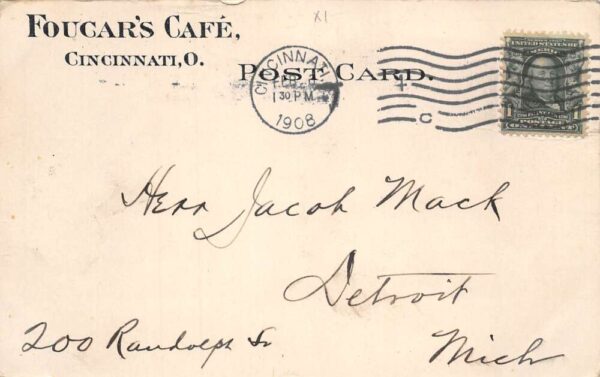 FOUCAR'S CAFÉ,
CINCINNATI, O.
POST CARD.
X1
CINCINNATI
1 30 PM
1908
C
Herr Jacob Mack
Detroit
200 Randolph St
Mich